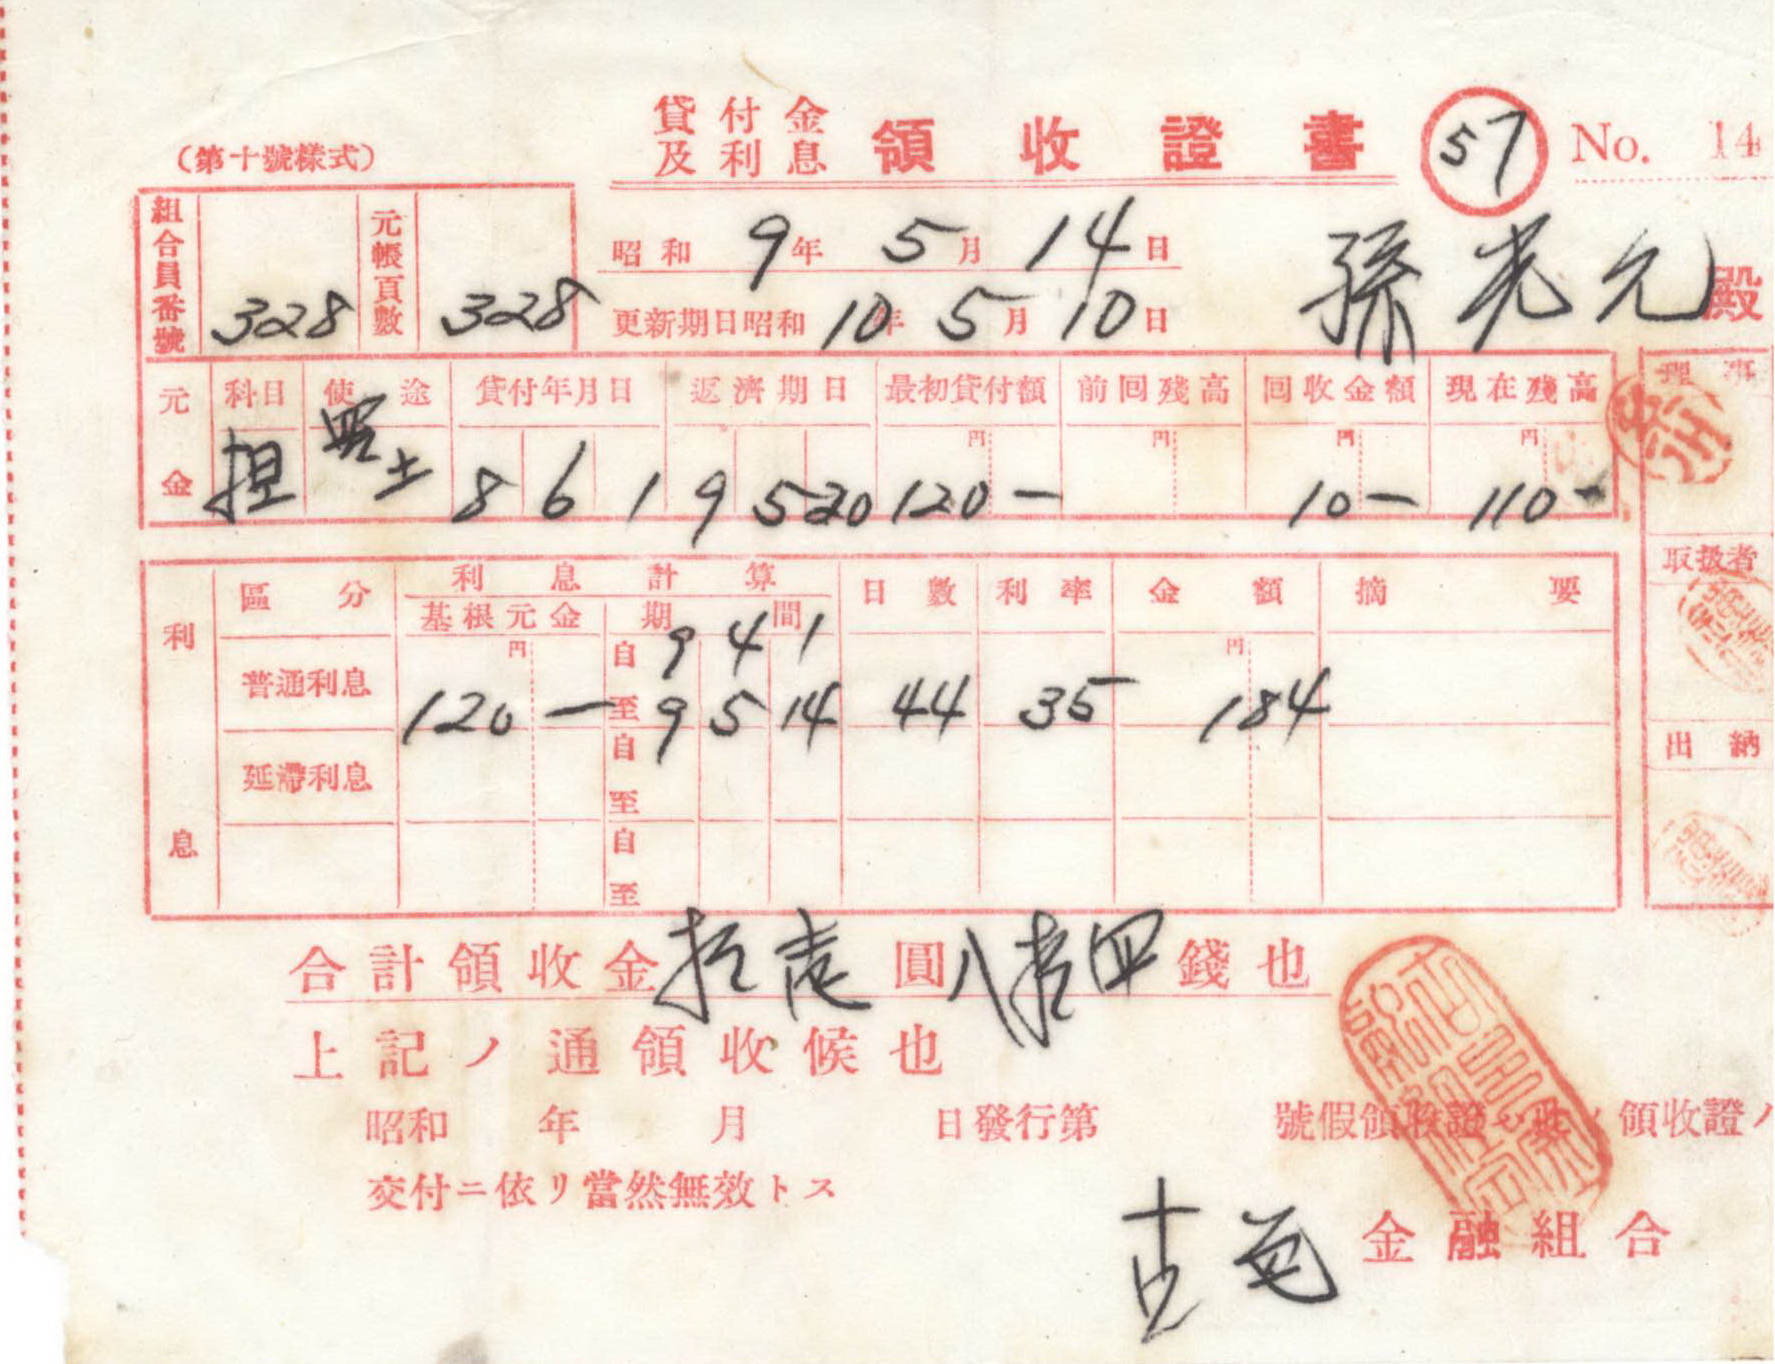 (第十號樣式)
貸付金
及利息 領收證書 57 No. 14
組合員番號 328 元帳頁數 328
昭和 9年 5月 14日
更新期日昭和 10年 5月 10日
孫光允殿
元金 科目 使途 貸付年月日 返濟期日 最初貸付額 前回殘高 回收金額 現在殘高
円 円 円 円
担 買土 8 6 1 9 5 20 120 — 10 — 110 —
理事
取扱者
出納
利息 區分 利息計算 日數 利率 金額 摘要
基根元金 期間
普通利息 円 120 — 自 9 4 1 至 9 5 14 44 35 円 184
延滯利息 自 至
自 至
合計領收金拾壱圓八拾四錢也
上記ノ通領收候也
昭和 年 月 日發行第 號假領收證ハ此ノ領收證ノ
交付ニ依リ當然無效トス
金融組合